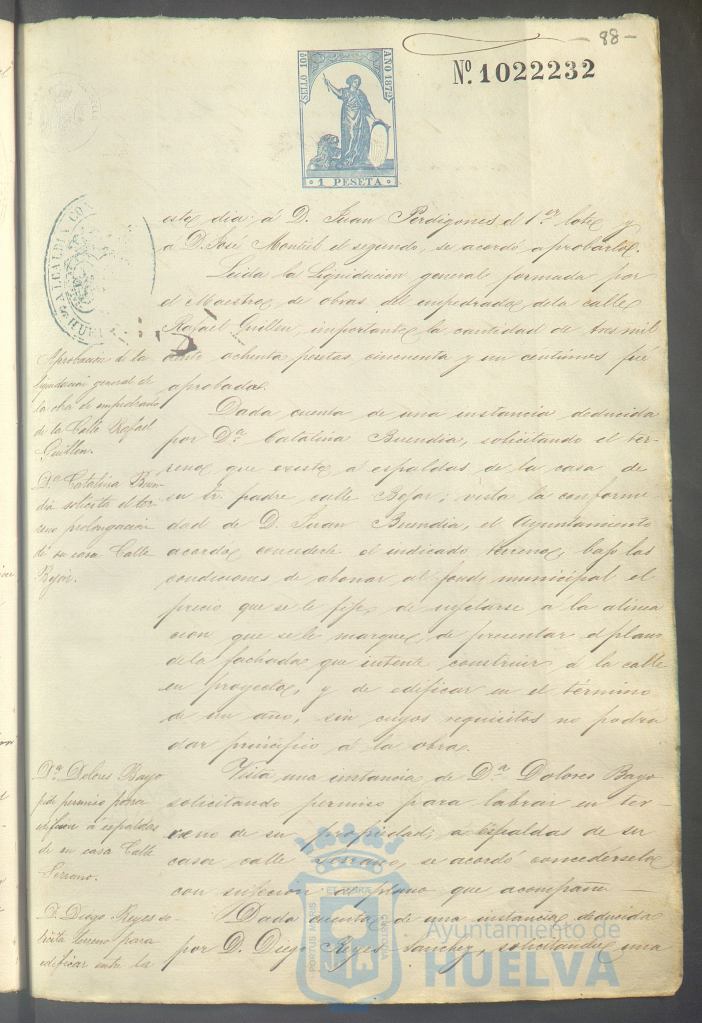 88-
Nº. 1022232
SELLO 10º
AÑO 1872
1 PESETA
ALCALDIA CON
HUEL
este dia á D. Juan Perdigones el 1.er lote y
a D. José Montiel el segundo, se acordó aprobarlo.
Leida la liquidacion general formada por
el Maestro de obras del empedrado de la calle
Rafael Guillen, importante la cantidad de tres mil
ochenta pesetas cincuenta y un centimos fué
aprobada.
Aprobacion de la
liquidacion general de
la obra de empedrado
de la Calle Rafael
Guillen.
Dada cuenta de una instancia deducida
por D.ª Catalina Buendia, solicitando el ter-
reno que existe á espaldas de la casa de
su Sr. padre calle Bejar; vista la conformi
dad de D. Juan Buendia, el Ayuntamiento
acordó concederle el indicado terreno, bajo las
condiciones de abonar al fondo municipal el
precio que se le fije, de sujetarse á la alinea
cion que se le marque, de presentar el plano
de la fachada que intente construir á la calle
en proyecto, y de edificar en el término
de un año, sin cuyos requisitos no podrá
dar principio á la obra.
D.ª Catalina Buen
dia solicita el ter
reno prolongacion
de su casa Calle
Bejar.
Vista una instancia de D.ª Dolores Bayo
solicitando permiso para labrar en ter-
reno de su propiedad, á espaldas de su
casa calle Serrano, se acordó concederselo
con sujecion al plano que acompaña
D.ª Dolores Bayo
pide permiso para
edificar á espaldas
de su casa Calle
Serrano.
Dada cuenta de una instancia deducida
por D. Diego Reyes Sanchez, solicitando una
D. Diego Reyes so-
licita terreno para
edificar entre la
PORTUS MARIS
ET TERRA
CUSTODIA
Ayuntamiento de
HUELVA